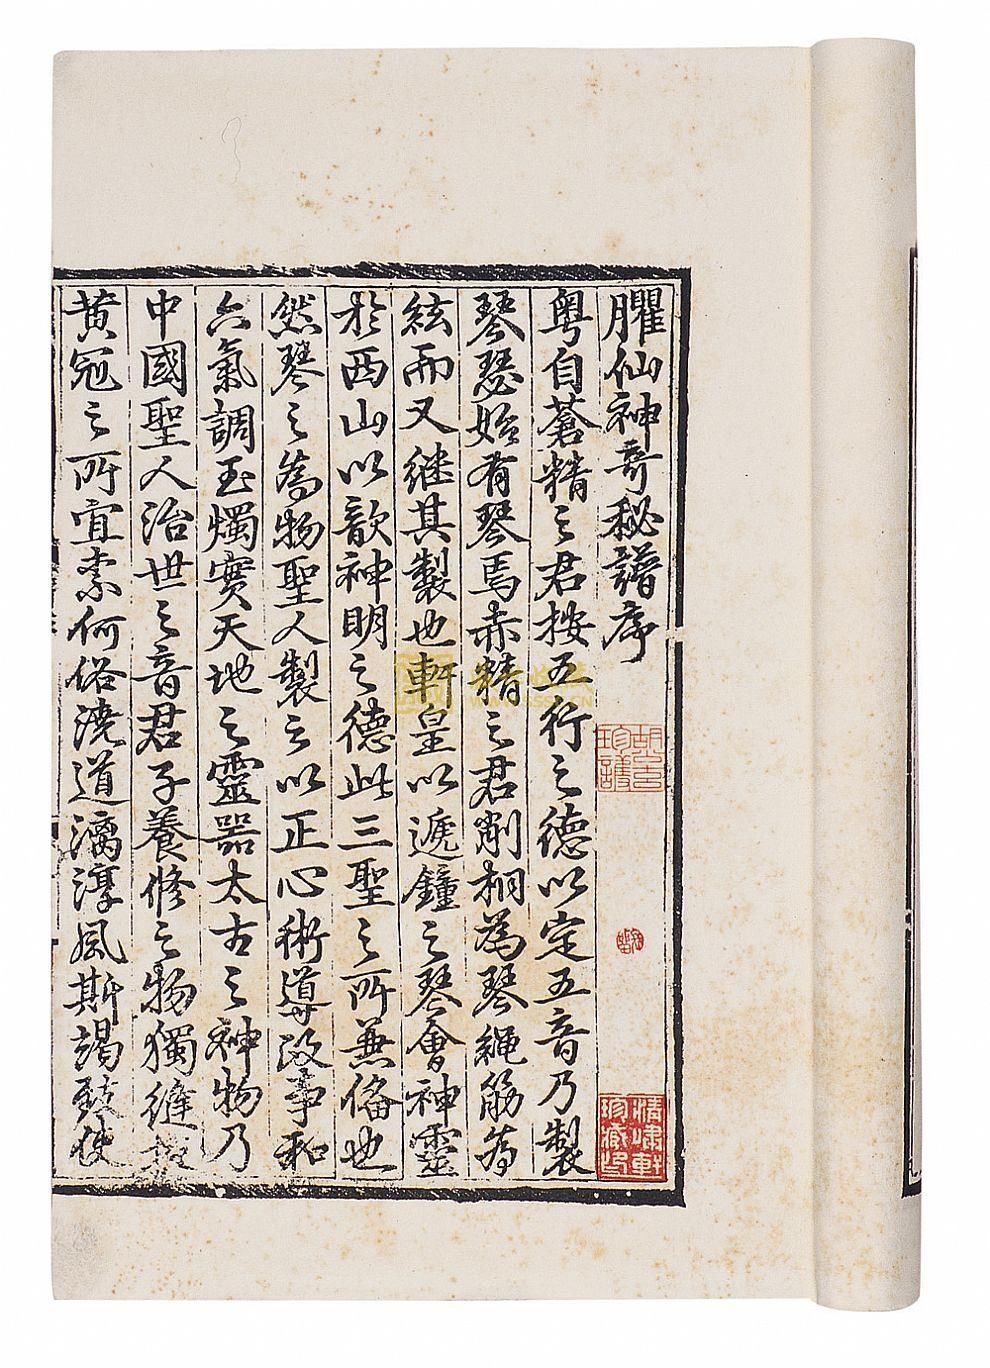 臞仙神奇秘譜序
粤自蒼精之君按五行之德以定五音乃製
琴瑟始有琴焉赤精之君削桐為琴繩筋為
絃而又继其製也軒皇以遞鐘之琴會神靈
於西山以歆神明之德此三聖之所兼俻也
然琴之為物聖人製之以正心術導政事和
六氣調玉燭實天地之靈噐太古之神物乃
中國聖人治世之音君子養修之物獨縫掖
黄冠之所宜素何俗澆道漓淳風斯竭致使